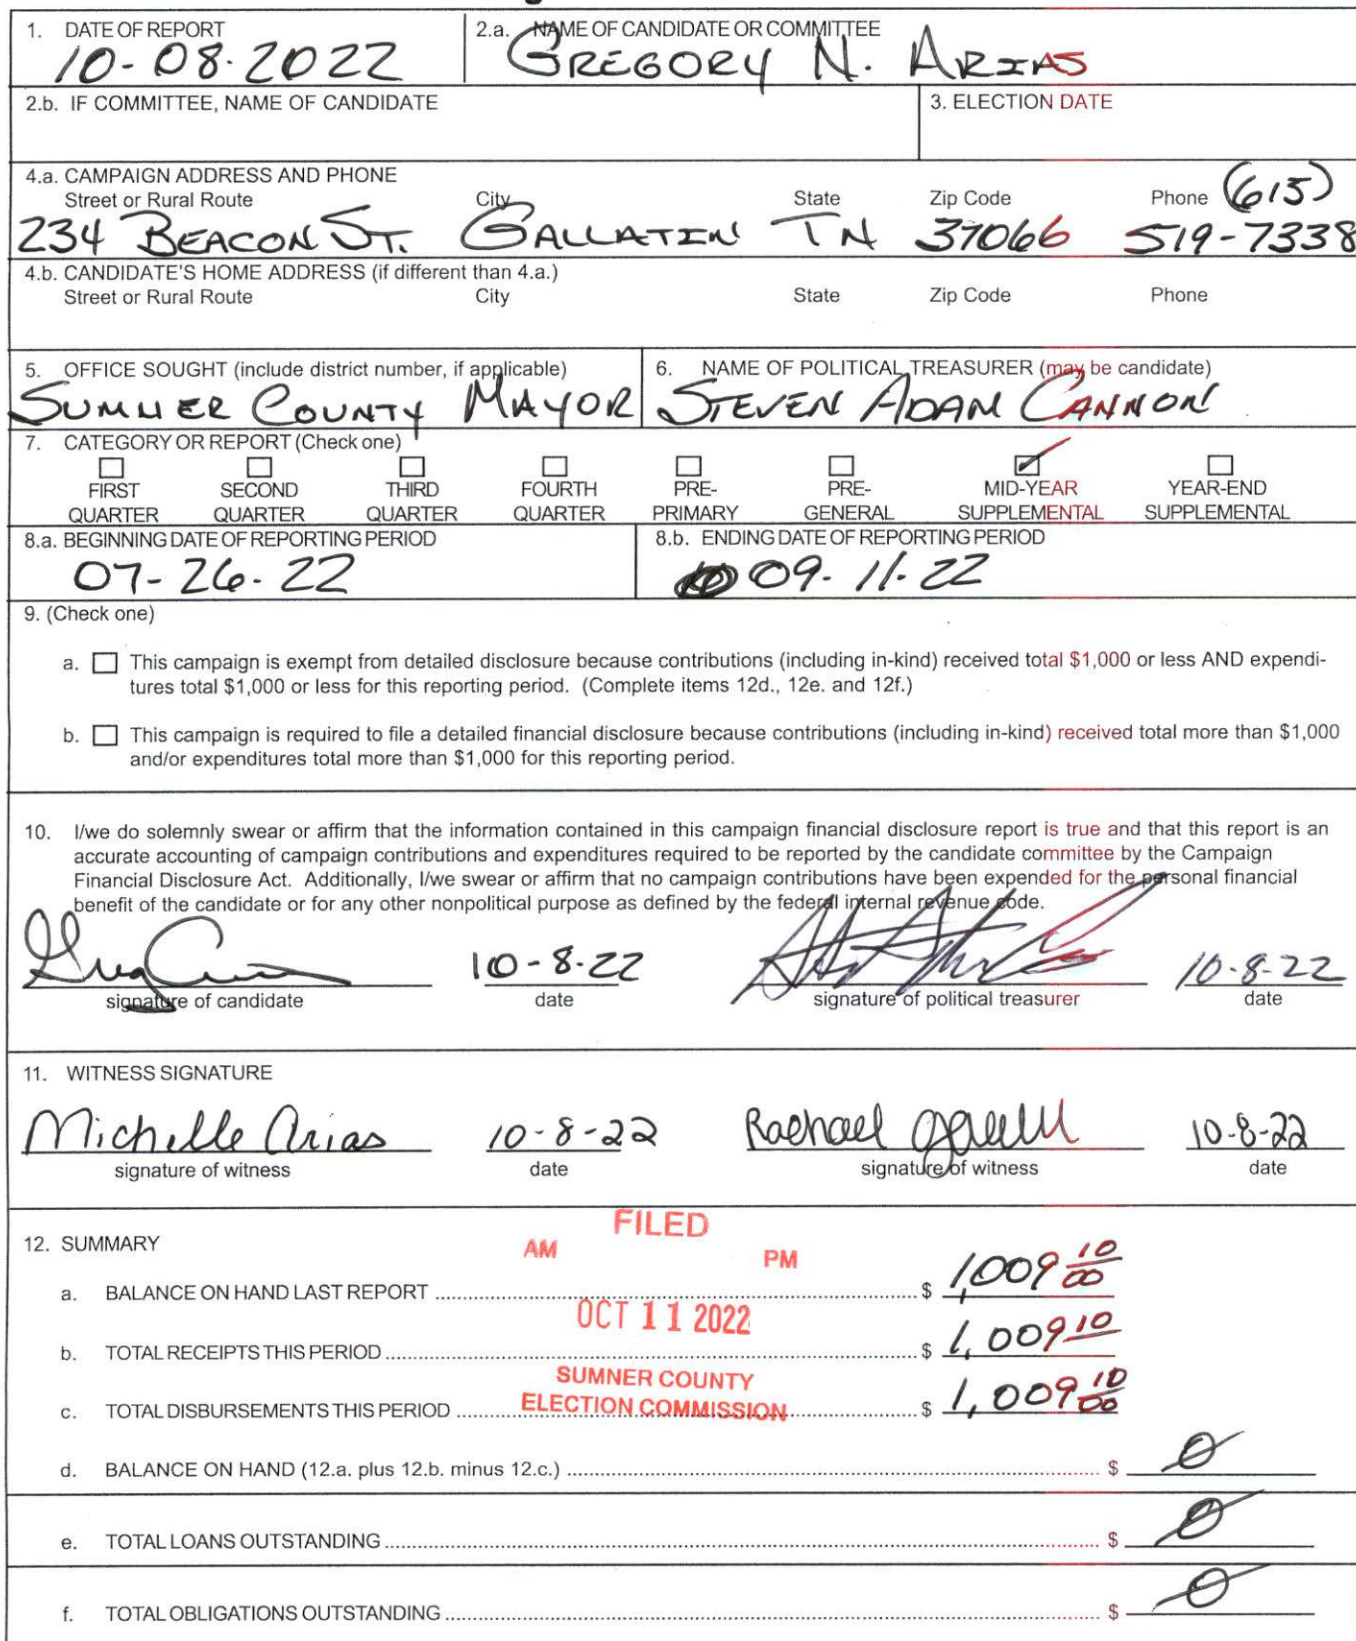 1. DATE OF REPORT
10-08-2022
2.a. NAME OF CANDIDATE OR COMMITTEE
GREGORY N. ARIAS
2.b. IF COMMITTEE, NAME OF CANDIDATE
3. ELECTION DATE
4.a. CAMPAIGN ADDRESS AND PHONE
Street or Rural Route City State Zip Code Phone (615)
234 BEACON ST. GALLATIN TN 37066 519-7338
4.b. CANDIDATE'S HOME ADDRESS (if different than 4.a.)
Street or Rural Route City State Zip Code Phone
5. OFFICE SOUGHT (include district number, if applicable)
SUMNER COUNTY MAYOR
6. NAME OF POLITICAL TREASURER (may be candidate)
STEVEN ADAM CANNON
7. CATEGORY OR REPORT (Check one)
FIRST SECOND THIRD FOURTH PRE- PRE- MID-YEAR YEAR-END
QUARTER QUARTER QUARTER QUARTER PRIMARY GENERAL SUPPLEMENTAL SUPPLEMENTAL
8.a. BEGINNING DATE OF REPORTING PERIOD
07-26-22
8.b. ENDING DATE OF REPORTING PERIOD
09-11-22
9. (Check one)
a. This campaign is exempt from detailed disclosure because contributions (including in-kind) received total $1,000 or less AND expendi-
tures total $1,000 or less for this reporting period. (Complete items 12d., 12e. and 12f.)
b. This campaign is required to file a detailed financial disclosure because contributions (including in-kind) received total more than $1,000
and/or expenditures total more than $1,000 for this reporting period.
10. I/we do solemnly swear or affirm that the information contained in this campaign financial disclosure report is true and that this report is an
accurate accounting of campaign contributions and expenditures required to be reported by the candidate committee by the Campaign
Financial Disclosure Act. Additionally, I/we swear or affirm that no campaign contributions have been expended for the personal financial
benefit of the candidate or for any other nonpolitical purpose as defined by the federal internal revenue code.
10-8-22 10-8-22
signature of candidate date signature of political treasurer date
11. WITNESS SIGNATURE
Michelle Arias 10-8-22 Rachael 10-8-22
signature of witness date signature of witness date
FILED
12. SUMMARY
AM PM
a. BALANCE ON HAND LAST REPORT $ 1,009 10/00
OCT 11 2022
b. TOTAL RECEIPTS THIS PERIOD $ 1,009 10
SUMNER COUNTY
ELECTION COMMISSION
c. TOTAL DISBURSEMENTS THIS PERIOD $ 1,009 10/00
d. BALANCE ON HAND (12.a. plus 12.b. minus 12.c.) $ 0
e. TOTAL LOANS OUTSTANDING $ 0
f. TOTAL OBLIGATIONS OUTSTANDING $ 0